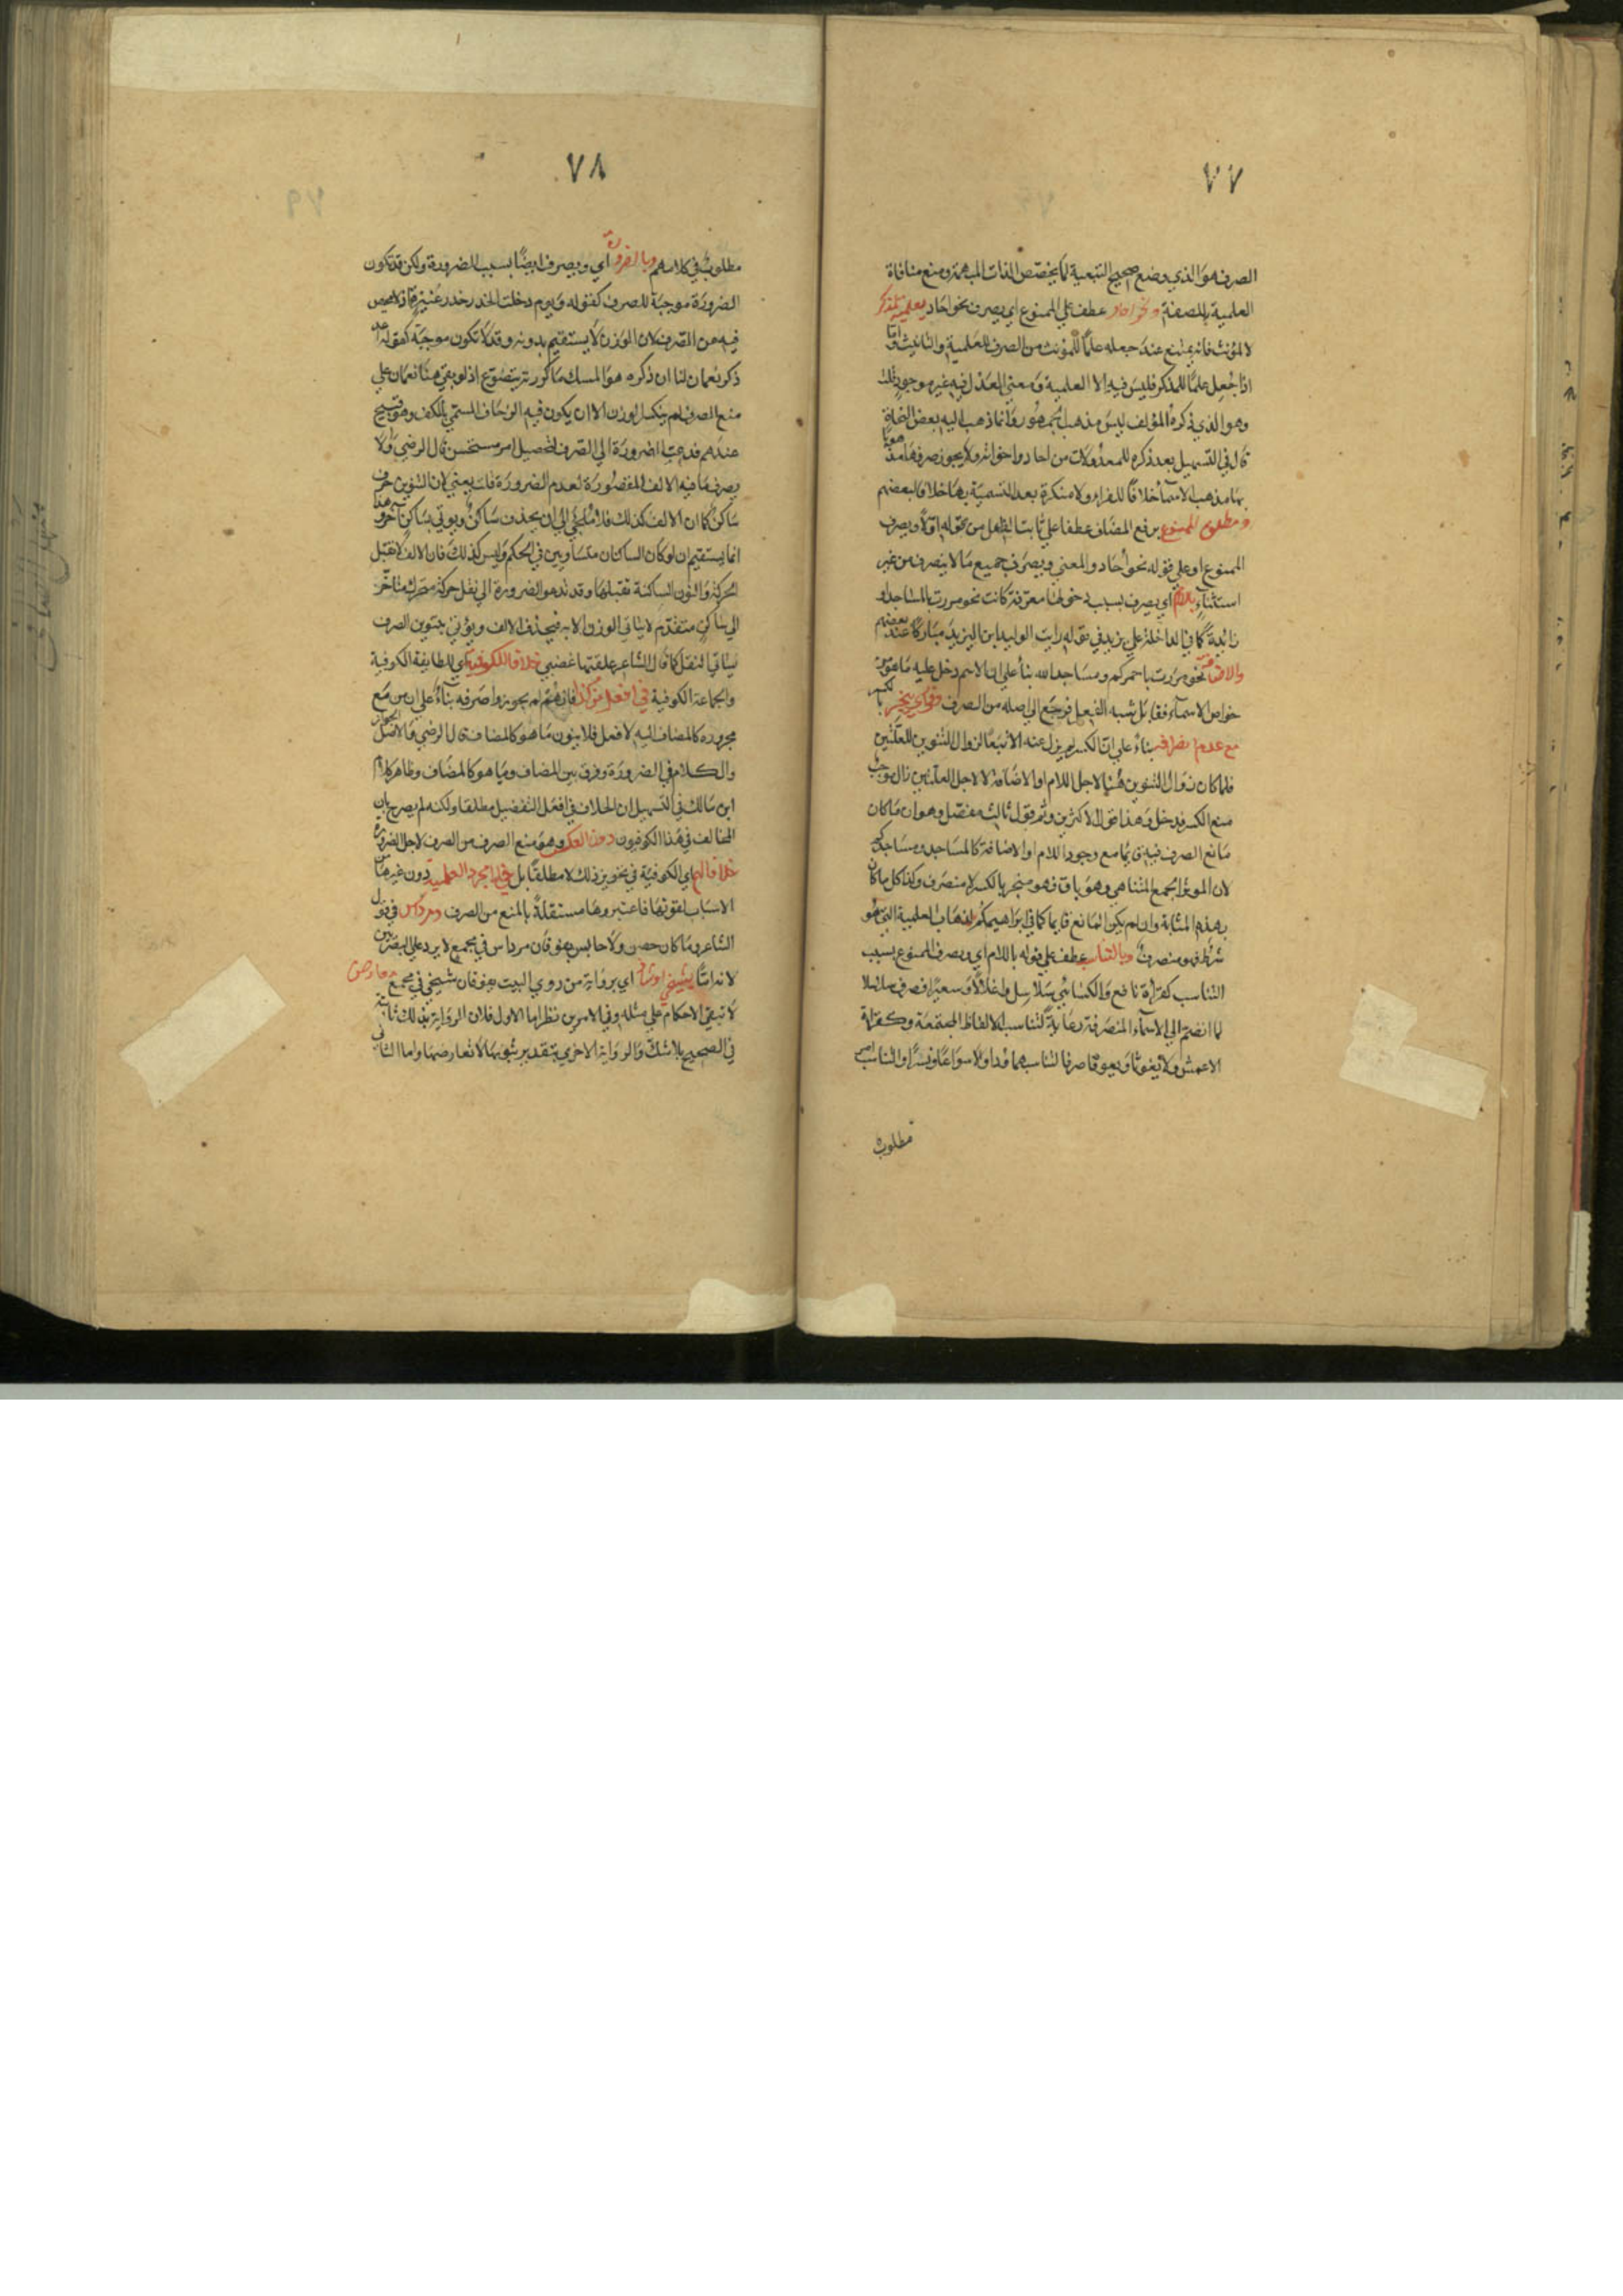 ٧٧
الصرف هو الذي وضع صحيح التبعية لما يخصص الذات المبهمة ومنع منافاة
العلمية للصفة ونحو احاد عطف علي الممنوع اي يصرف نحو احاد بعلمية لمذكر
لا لمؤنث فانه يمتنع عند جعله علمًا للمؤنث من الصرف للعلمية والتانيث واما
اذا جعل علمًا للمذكر فليس فيه الا العلمية ومعني العدل فيه غير موجود قلت
وهو الذي ذكره المؤلف ليس مذهب الجمهور وانما ذهب اليه بعض النحاة
قال في التسهيل بعد ذكره للمعدولات من احاد واخواته ولا يجوز صرفها مذهوبًا
بها مذهب الاسما خلافًا للفراء ولا منكرة بعد التسمية بها خلافا لبعضهم
ومطلق الممنوع برفع المضاف عطفا علي من قوله اولًا ويصرف
الممنوع او علي قوله نحو احاد والمعني ويصرف جميع ما لا ينصرف من غير
استثناء باللام اي يصرف بسبب دخولها معرفة كانت نحو مررت بالمساجد او
زائدة كما في الداخلة علي يزيد في قوله رايت الوليد ابن اليزيد مباركًا عند بعضهم
والاضافة نحو مررت باحمركم ومساجد الله بنأ علي ان الاسم دخل عليه ما هو من
خواص الاسمآء فقابل شبه الفعل فرجع الي اصله من الصرف
مع عدم بناءً علي ان الكسر لم يزل عنه الا تبعًا لزوال التنوين للعلتين
فلما كان زوال التنوين هنا لاجل اللام او الاضافة لا لاجل العلتين زال موجب
منع الكسر فدخل وهذا قول الاكثرين وثم قول ثالث مفصل وهو ان ما كان
مانع الصرف فيه باقيا مع وجود اللام او الاضافة كالمساجد ومساجدكم
لان المؤثر الجمع المتناهي وهو باق فهو منجر بالكسر لا منصرف وكذا كل ما كان
بهذه المثابة وان لم يكن المانع قايما كما في ابراهيمكم لذهاب العلمية التي هو
شرط فهو منصرف وبالتناسب عطف علي قوله باللام اي ويصرف الممنوع بسبب
التناسب كقرأة نافع والكسائي سلاسل واغلالًا وسعيرًا فصرف سلاسلا
لما انضم الي الاسمآء المنصرفة رعايةً لتناسب الالفاظ المجتمعة وكقرأة
الاعمش ولا يغوثًا ويعوقًا صرفا لتناسبهما ودا ولا سواعًا ونسرًا والتناسب امر
مطلوب
٧٨
مطلوب في كلامهم وبالضرورة اي ويصرف ايضًا بسبب الضرورة ولكن قد تكون
الضرورة موجبة للصرف كقوله ويوم دخلت الخدر خدر عنيزة اذ لا محيص
فيه من الصرف لان الوزن لا يستقيم بدونه وقد لا تكون موجبة كقوله اعد
ذكر نعمان لنا ان ذكره هو المسك ما كررته يتضوع اذ لو بقي هنا نعمان علي
منع الصرف لم ينكسر الوزن الا ان يكون فيه الزحاف المسمي بالكف وهو قبيح
عندهم فدعت الضرورة الي الصرف لتحصيل امر مستحسن قال الرضي ولا
يصرف ما فيه الالف المقصورة لعدم الضرورة فانه يعني لان التنوين حرف
ساكن كما ان الالف كذلك فلا ملجئ الي ان يحذف ساكن ويوتي بساكن آخر وهذا
انما يستقيم ان لو كان الساكنان متساويين في الحكم وليس كذلك فان الالف لا تقبل
الحركة والنون الساكنة تقبلها وقد تدعو الضرورة الي نقل حركة متحرك متأخر
الي ساكن متقدم لا يتاتي الوزن الا به فيحذف الالف ويؤتي بتنوين الصرف
ليتاتي النقل كما قال الشاعر علقتها غضبي خلافا للكوفية اي للطايفة الكوفية
والجماعة الكوفية في افعل من كذا فانهم لم يجوزوا صرفه بنآءً علي ان من مع
مجروره كالمضاف اليه لافعل فلا ينون ما هو كالمضاف قال الرضي والاصل الجواز
والكلام في الضرورة وفرق بين المضاف وما هو كالمضاف وظاهر كلام
ابن مالك في التسهيل ان الخلاف في افعل التفضيل مطلقا ولكنه لم يصرح بان
المخالف في هذا الكوفيون دون العكس وهو منع الصرف من الصرف لاجل الضرورة
خلافا لهم اي الكوفية في تجويز ذلك لا مطلقًا بل في مجرد العلمية دون غيرها من
الاسباب لقوتها فاعتبروها مستقلةً بالمنع من الصرف ومرداس في قول
الشاعر وما كان حصن ولا حابس يفوقان مرداس في مجمع لا يرد علي البصريين
لانه اما بشيخي اي برواية من روي البيت يفوقان شيخي في مجمع
لا تبقي الاحكام علي مثله وفي الامرين نظر اما الاول فلان الرواية بذلك ثابتة
في الصحيح بلا شك والرواية الاخري بتقدير ثبوتها لا تعارضها واما الثاني